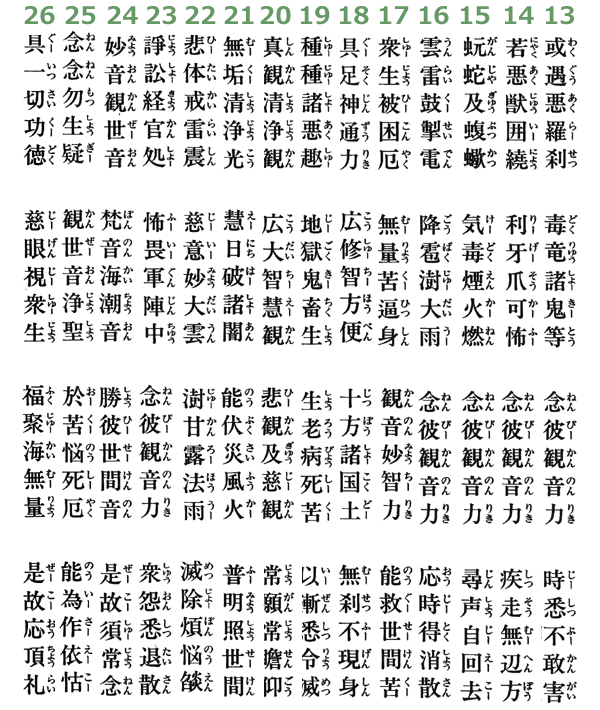 13 或遇悪羅刹 毒竜諸鬼等 念彼観音力 時悉不敢害
14 若悪獣囲繞 利牙爪可怖 念彼観音力 疾走無辺方
15 蚖蛇及蝮蠍 気毒煙火燃 念彼観音力 尋声自回去
16 雲雷鼓掣電 降雹澍大雨 念彼観音力 応時得消散
17 衆生被困厄 無量苦逼身 観音妙智力 能救世間苦
18 具足神通力 広修智方便 十方諸国土 無刹不現身
19 種種諸悪趣 地獄鬼畜生 生老病死苦 以漸悉令滅
20 真観清浄観 広大智慧観 悲観及慈観 常願常瞻仰
21 無垢清浄光 慧日破諸闇 能伏災風火 普明照世間
22 悲体戒雷震 慈意妙大雲 澍甘露法雨 滅除煩悩燄
23 諍訟経官処 怖畏軍陣中 念彼観音力 衆怨悉退散
24 妙音観世音 梵音海潮音 勝彼世間音 是故須常念
25 念念勿生疑 観世音浄聖 於苦悩死厄 能為作依怙
26 具一切功徳 慈眼視衆生 福聚海無量 是故応頂礼